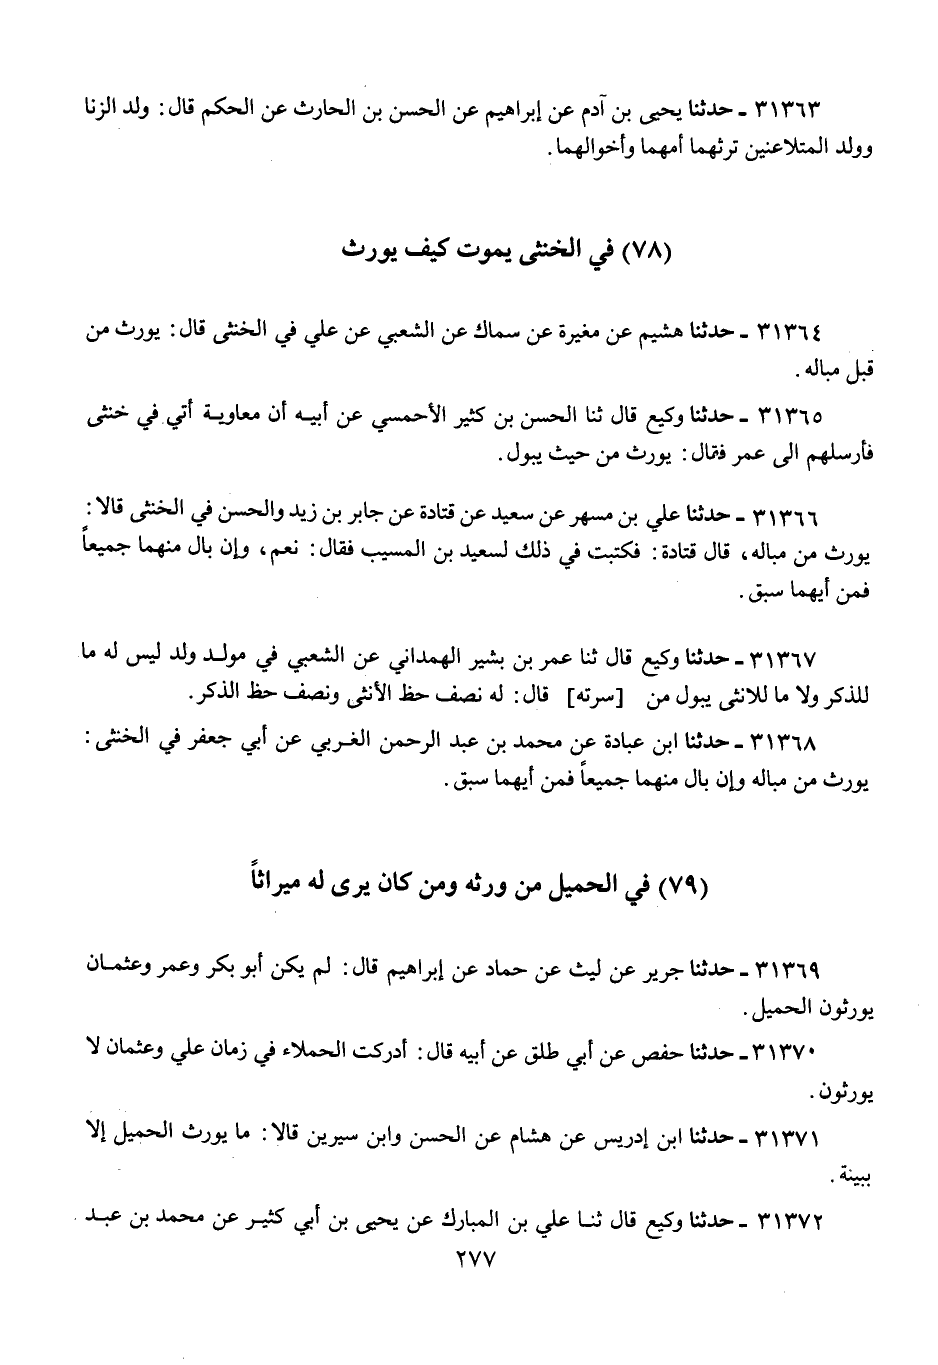 ٣١٣٦٣ - حدثنا يحيى بن آدم عن إبراهيم عن الحسن بن الحارث عن الحكم قال: ولد الزنا
وولد المتلاعنين ترثهما أمهما وأخوالهما.
(٧٨) في الخنثى يموت كيف يورث
٣١٣٦٤ - حدثنا هشيم عن مغيرة عن سماك عن الشعبي عن علي في الخنثى قال: يورث من
قبل مباله.
٣١٣٦٥ - حدثنا وكيع قال ثنا الحسن بن كثير الأحمسي عن أبيه أن معاوية أتي في خنثى
فأرسلهم الى عمر فقال: يورث من حيث يبول.
٣١٣٦٦ - حدثنا علي بن مسهر عن سعيد عن قتادة عن جابر بن زيد والحسن في الخنثى قالا:
يورث من مباله، قال قتادة: فكتبت في ذلك لسعيد بن المسيب فقال: نعم، وإن بال منهما جميعاً
فمن أيهما سبق.
٣١٣٦٧ - حدثنا وكيع قال ثنا عمر بن بشير الهمداني عن الشعبي في مولد ولد ليس له ما
للذكر ولا ما للانثى يبول من [سرته] قال: له نصف حظ الأنثى ونصف حظ الذكر.
٣١٣٦٨ - حدثنا ابن عبادة عن محمد بن عبد الرحمن الغربي عن أبي جعفر في الخنثى:
يورث من مباله وإن بال منهما جميعاً فمن أيهما سبق.
(٧٩) في الحميل من ورثه ومن كان يرى له ميراثاً
٣١٣٦٩ - حدثنا جرير عن ليث عن حماد عن إبراهيم قال: لم يكن أبو بكر وعمر وعثمان
يورثون الحميل.
٣١٣٧٠ - حدثنا حفص عن أبي طلق عن أبيه قال: أدركت الحملاء في زمان علي وعثمان لا
يورثون.
٣١٣٧١ - حدثنا ابن إدريس عن هشام عن الحسن وابن سيرين قالا: ما يورث الحميل إلا
ببينة.
٣١٣٧٢ - حدثنا وكيع قال ثنا علي بن المبارك عن يحيى بن أبي كثير عن محمد بن عبد
٢٧٧